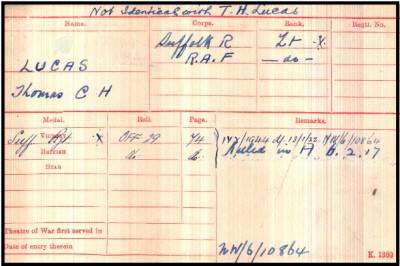 Not Identical with T. H. Lucas
Name. Corps. Rank. Regtl. No.
Suffolk R Lt x
LUCAS R.A.F — do —
Thomas C H
Medal. Roll. Page. Remarks.
Victory Suff Rgt. x OFF 29 74 13/1/22. NW/6/10864
British do do Killed in A. 6.2.17
Star
Theatre of War first served in
Date of entry therein NW/6/10864
K. 1380